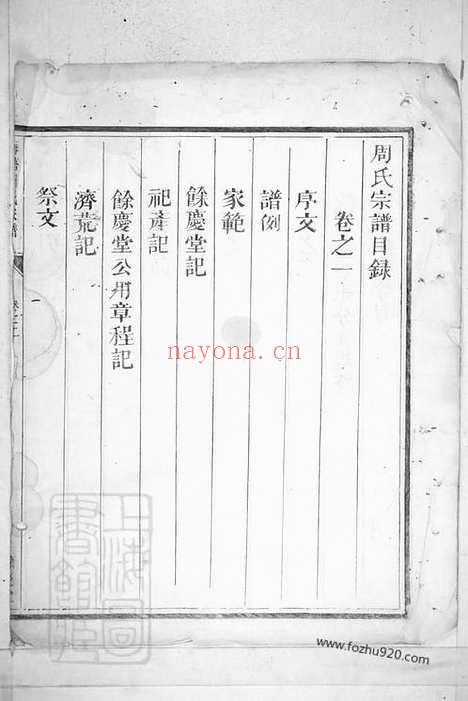 周氏宗譜目録
卷之一
序文
譜例
家範
餘慶堂記
祀產記
餘慶堂公用章程記
濟荒記
祭文
nayona.cn
上海圖書館藏
www.fozhu920.com